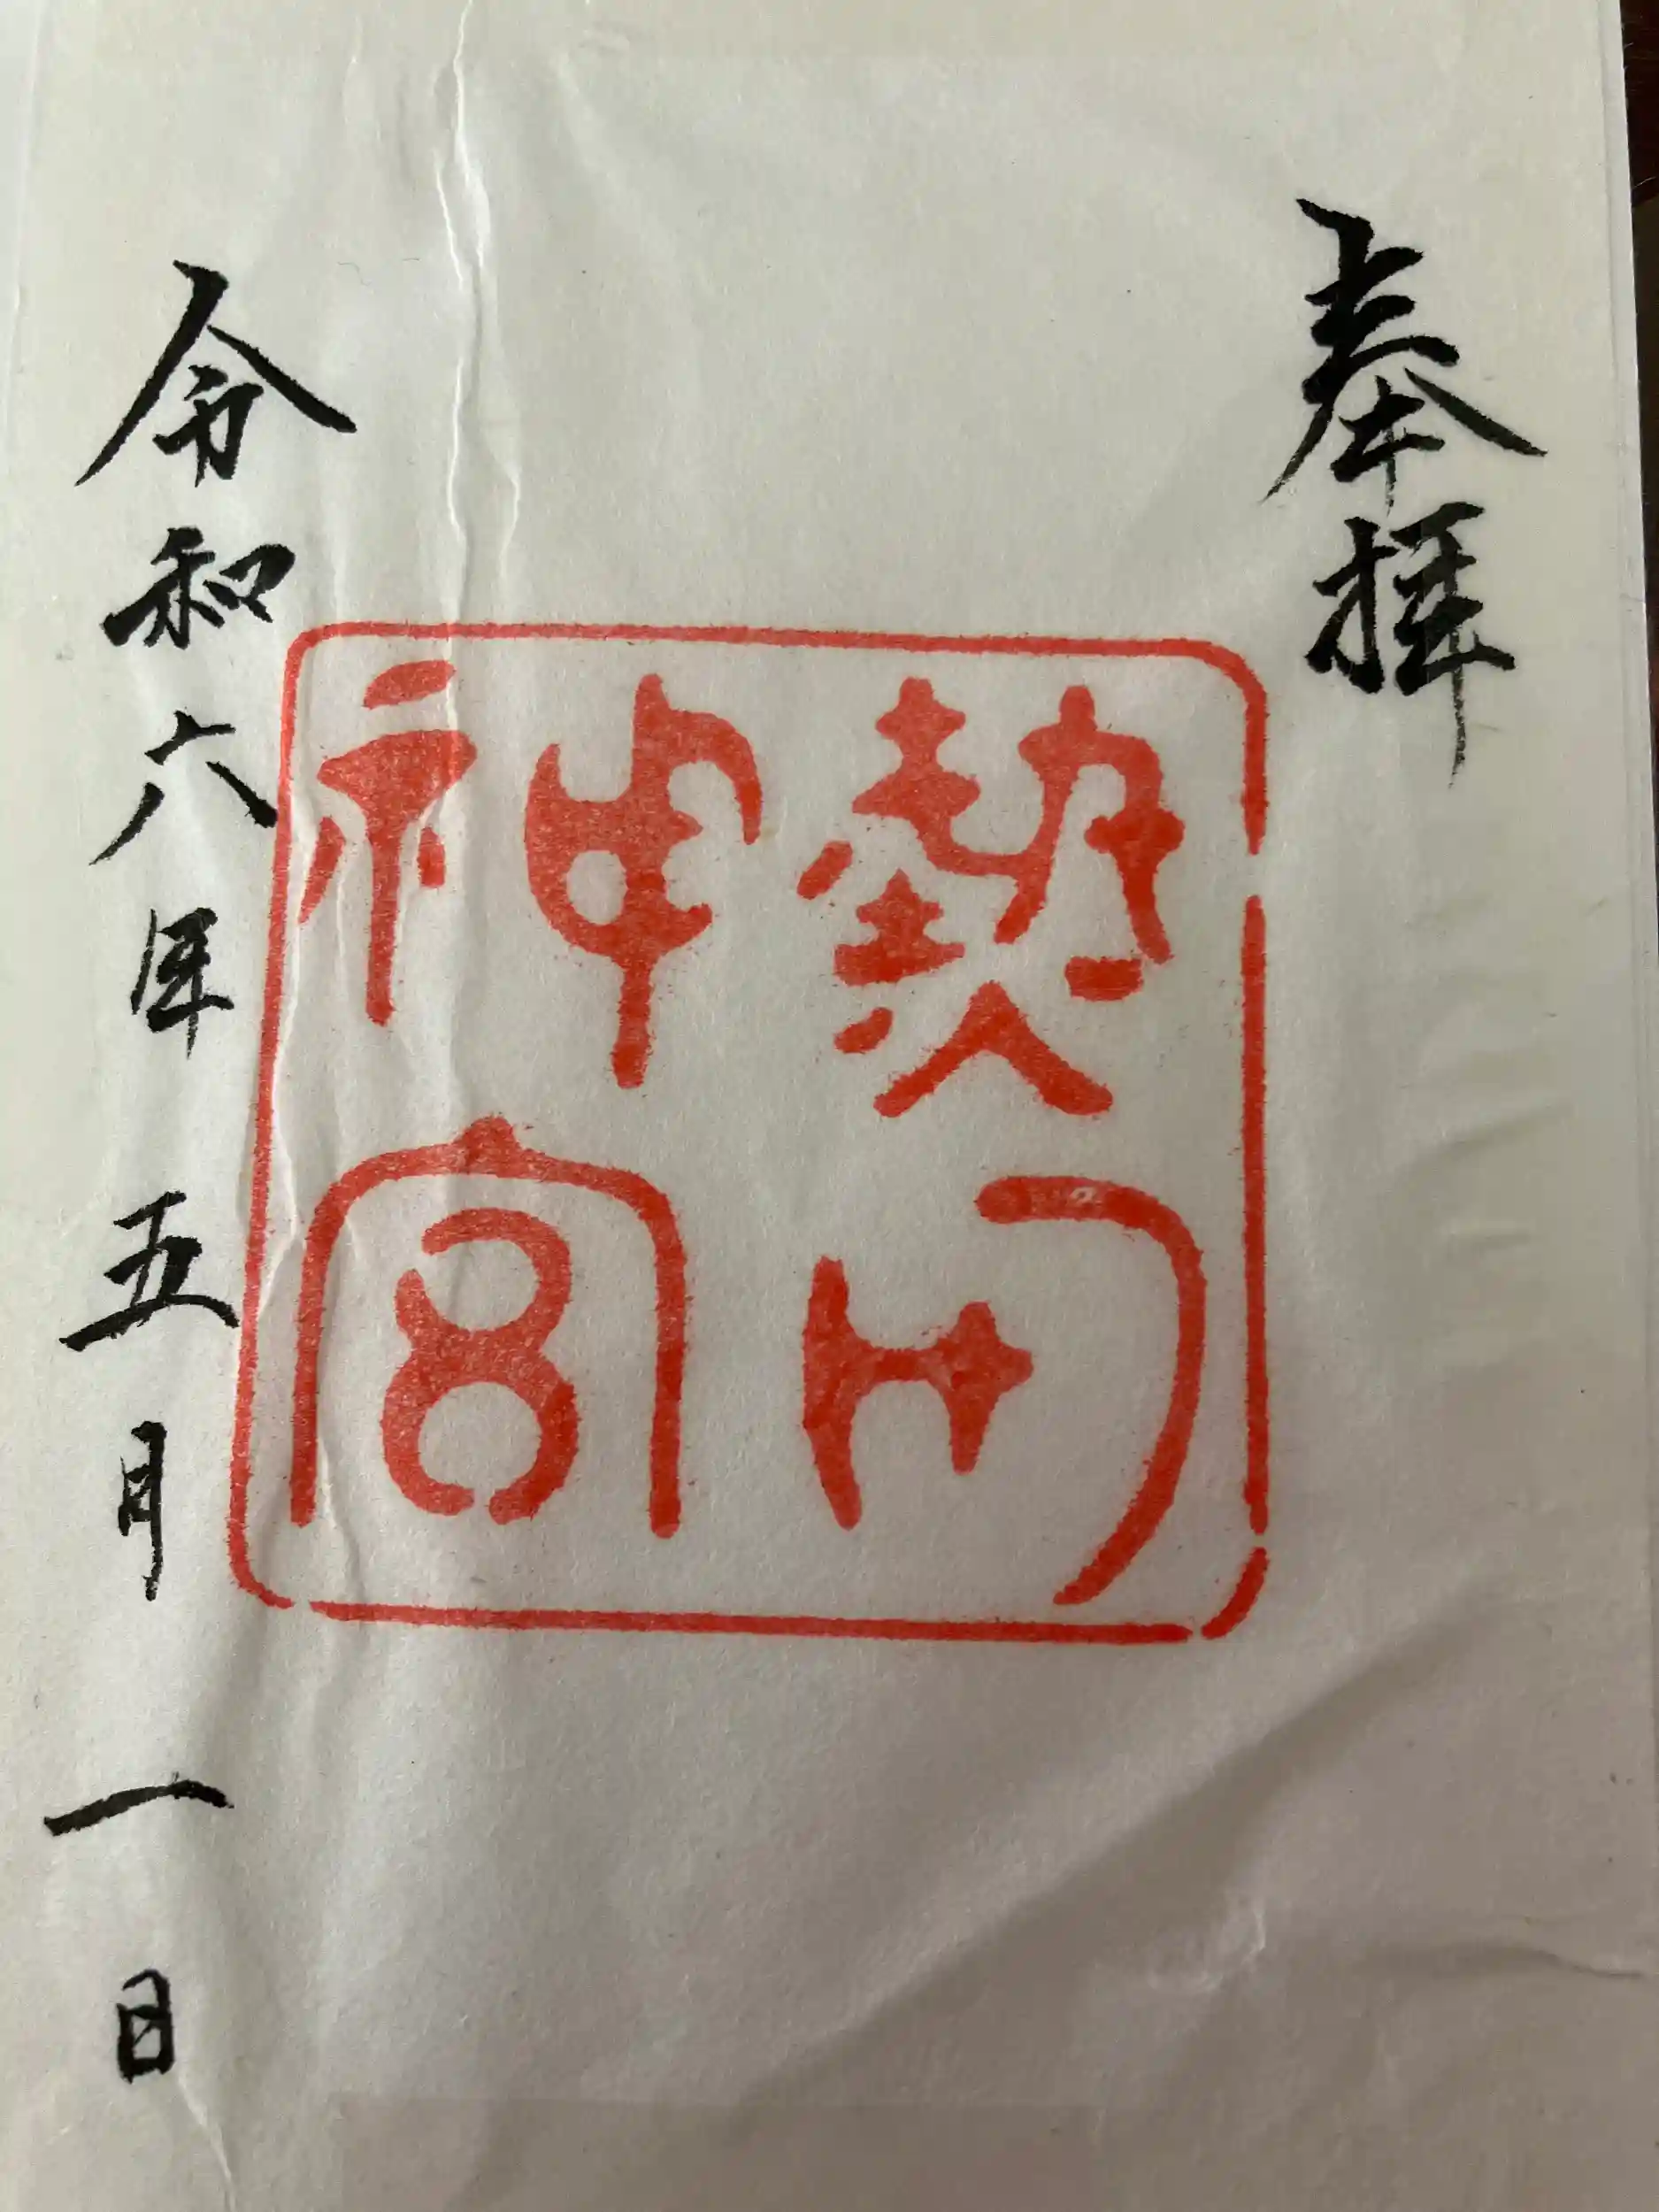 奉拝
熱田
神宮
令和六年五月一日